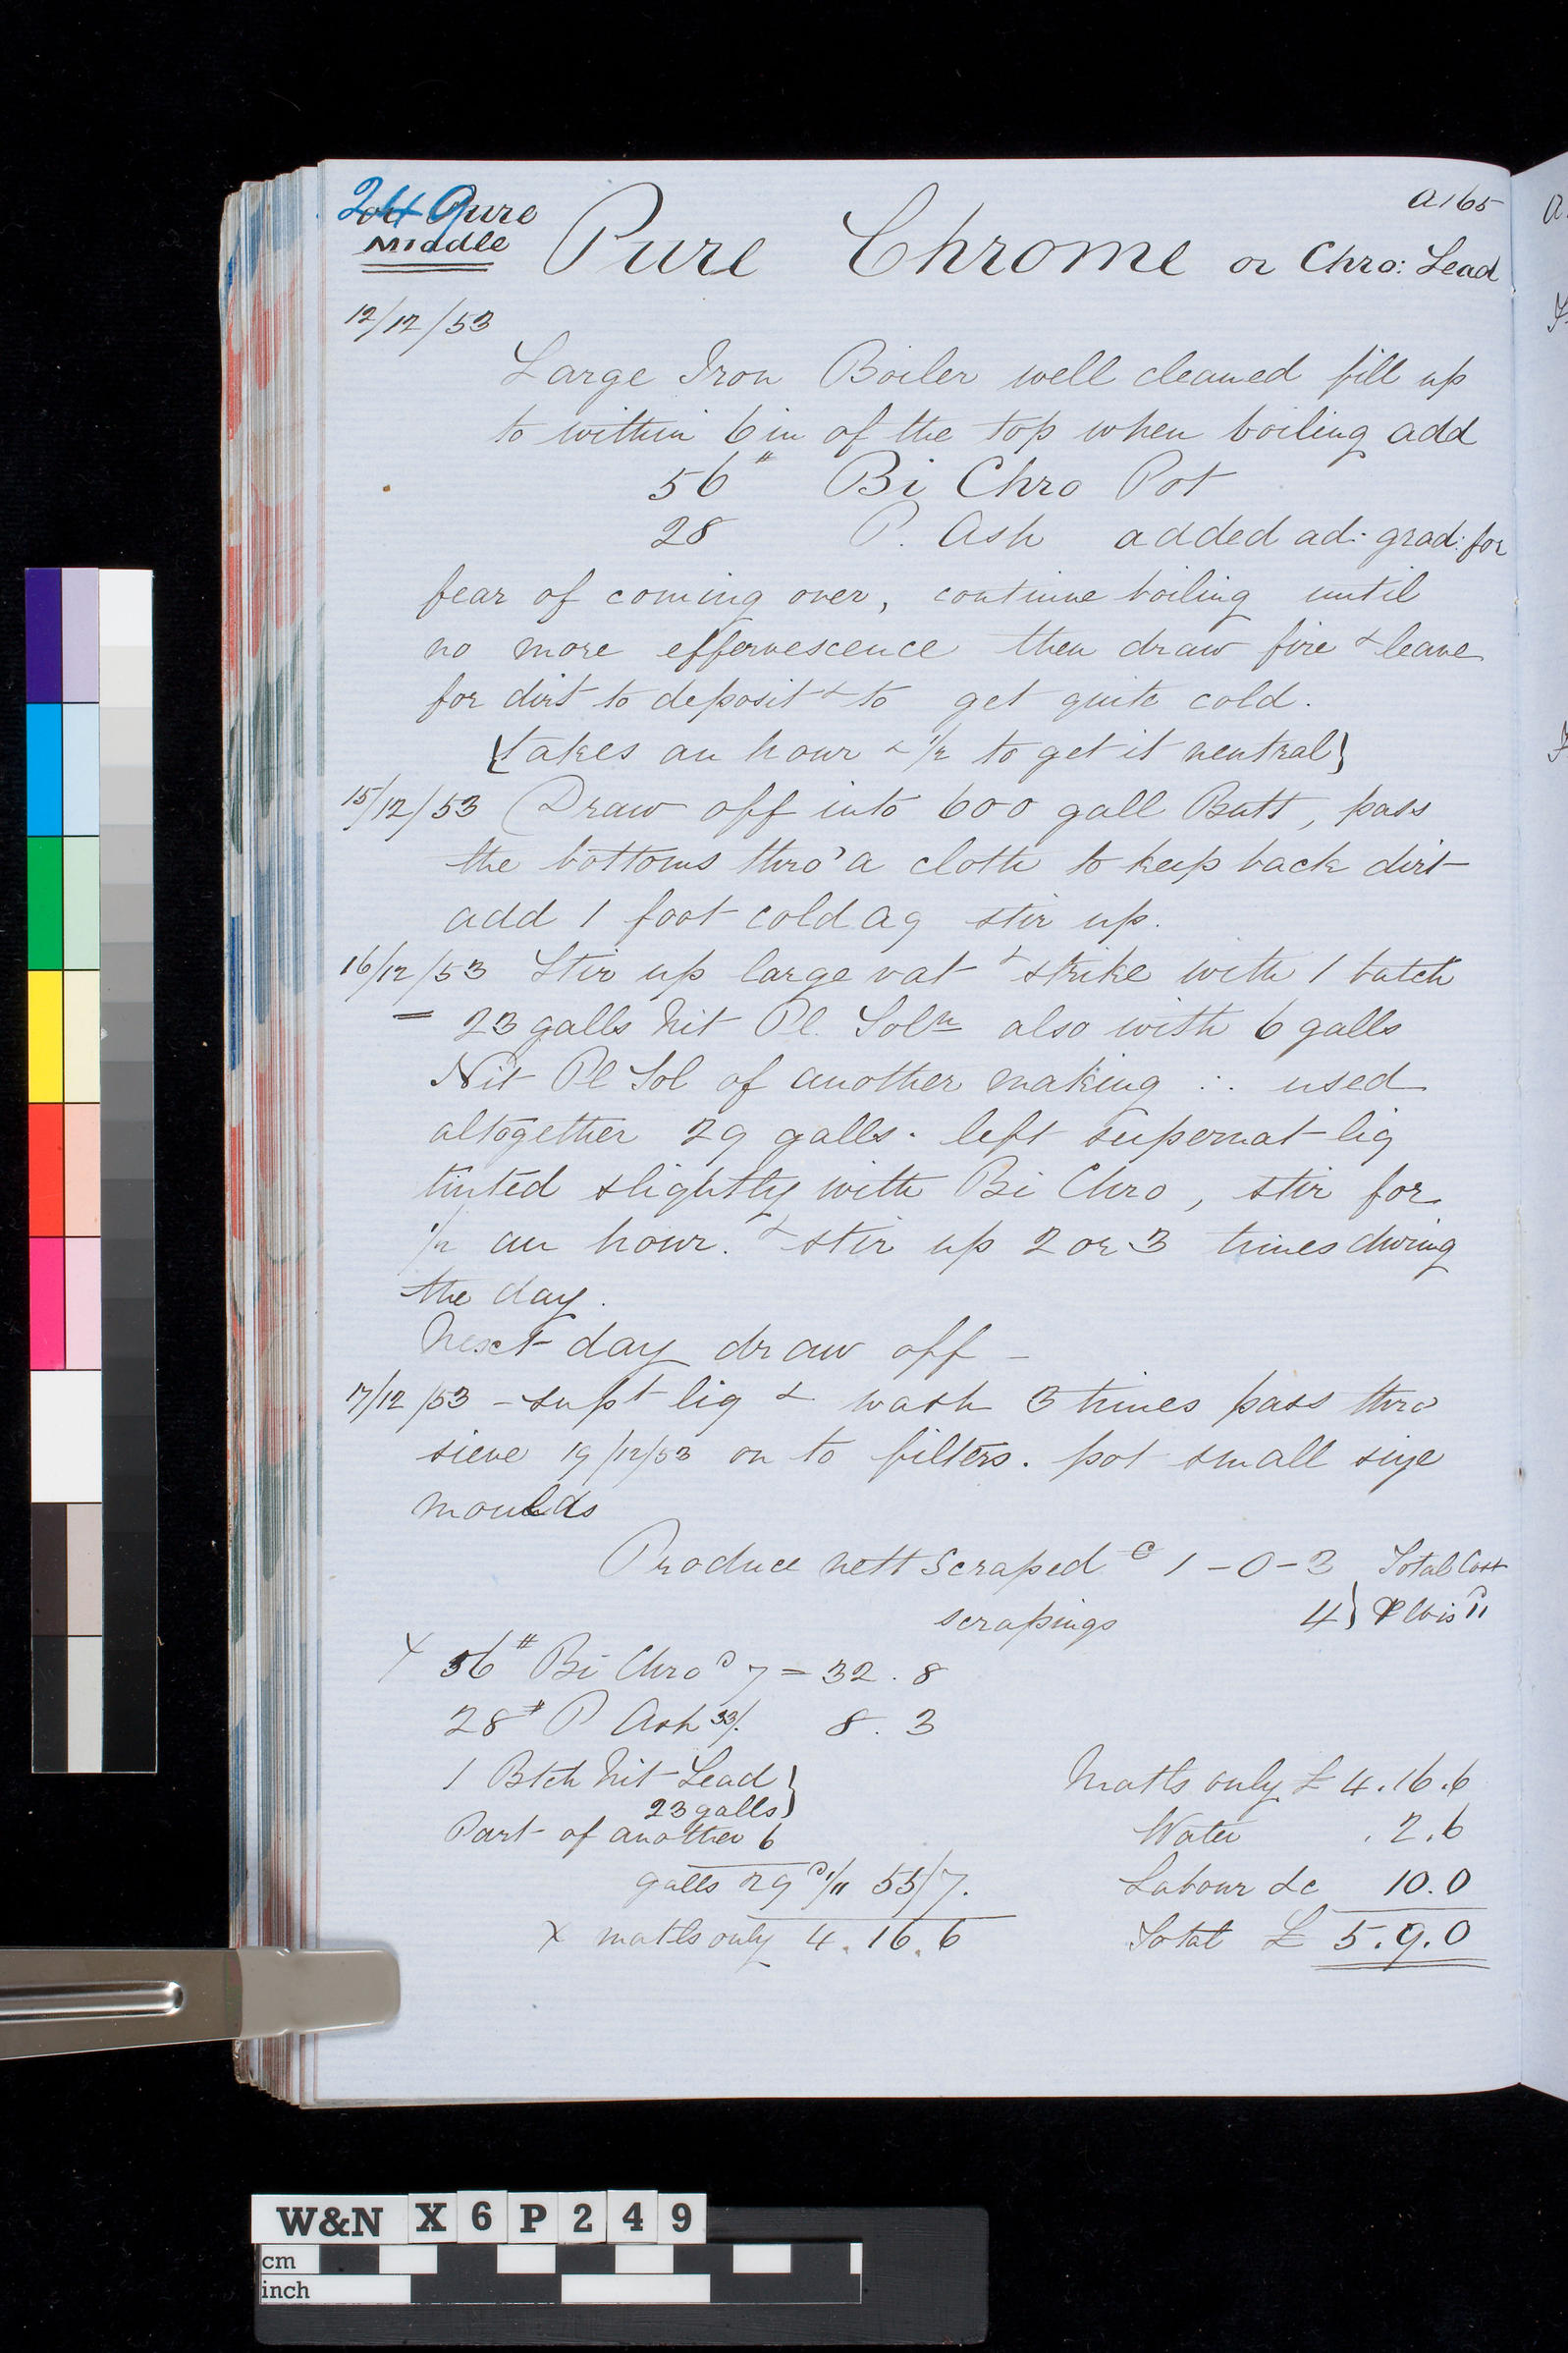 249
Pure
A165
Middle
Pure Chrome or Chro: Lead
12/12/53
Large Iron Boiler well cleaned fill up
to within 6 in of the top when boiling add
56# Bi Chro Pot
28 P. Ash added ad: grad: for
fear of coming over, continue boiling until
no more effervescence then draw fire & leave
for dirt to deposit & to get quite cold.
{takes an hour & 1/2 to get it neutral}
15/12/53 Draw off into 600 gall Butt, pass
the bottoms thro' a cloth to keep back dirt
add 1 foot cold aq stir up.
16/12/53 Stir up large vat & strike with 1 batch
= 23 galls Nit Pl. Soln also with 6 galls
Nit Pl Sol of another making ∴ used
altogether 29 galls. left supernat liq
tinted slightly with Bi Chro, stir for
1/2 an hour. & stir up 2 or 3 times during
the day.
Next day draw off -
17/12/53 - supt liq & wash 3 times pass thro
sieve 19/12/53 on to filters. pot small size
moulds
Produce nett scraped c 1-0-3 Total Cost
scrapings 4} P lb is 11
X 56# Bi Chro @ 7 = 32.8
28# P Ash 33/. 8.3
1 Btch Nit Lead }
23 galls }
Matls only £ 4.16.6
Part of another 6
Water .2.6
galls 29 @ 1/11 55/7.
Labour &c 10.0
X matls only 4.16.6
Total £ 5.9.0
W&N X 6 P 2 4 9
cm
inch